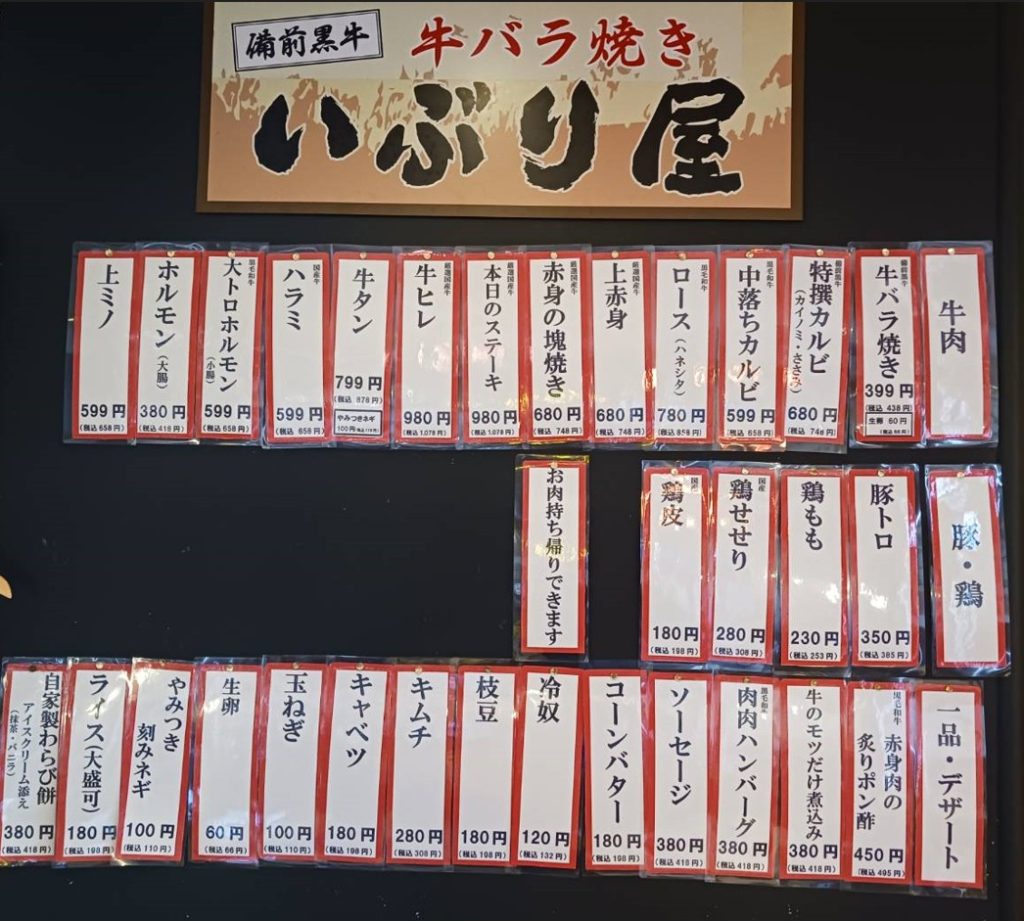 備前黒牛
牛バラ焼き
いぶり屋
牛肉
備前黒牛
牛バラ焼き
399円
(税込 438円)
生卵 60円
(税込 66円)
備前黒牛
特撰カルビ
(カイノミ・ささみ)
680円
(税込 748円)
黒毛和牛
中落ちカルビ
599円
(税込 658円)
黒毛和牛
ロース(ハネシタ)
780円
(税込 858円)
厳選国産牛
上赤身
680円
(税込 748円)
厳選国産牛
赤身の塊焼き
680円
(税込 748円)
厳選国産牛
本日のステーキ
980円
(税込 1,078円)
厳選国産牛
牛ヒレ
980円
(税込 1,078円)
牛タン
799円
(税込 878円)
やみつきネギ
100円(税込 110円)
国産牛
ハラミ
599円
(税込 658円)
黒毛和牛
大トロホルモン
(小腸)
599円
(税込 658円)
ホルモン(大腸)
380円
(税込 418円)
上ミノ
599円
(税込 658円)
豚・鶏
豚トロ
350円
(税込 385円)
鶏もも
230円
(税込 253円)
国産
鶏せせり
280円
(税込 308円)
国産
鶏皮
180円
(税込 198円)
お肉持ち帰りできます
一品・デザート
黒毛和牛
赤身肉の
炙りポン酢
450円
(税込 495円)
牛のモツだけ煮込み
380円
(税込 418円)
黒毛和牛
肉肉ハンバーグ
380円
(税込 418円)
ソーセージ
380円
(税込 418円)
コーンバター
180円
(税込 198円)
冷奴
120円
(税込 132円)
枝豆
180円
(税込 198円)
キムチ
280円
(税込 308円)
キャベツ
180円
(税込 198円)
玉ねぎ
100円
(税込 110円)
生卵
60円
(税込 66円)
やみつき
刻みネギ
100円
(税込 110円)
ライス(大盛可)
180円
(税込 198円)
自家製わらび餅
アイスクリーム添え
(抹茶・バニラ)
380円
(税込 418円)